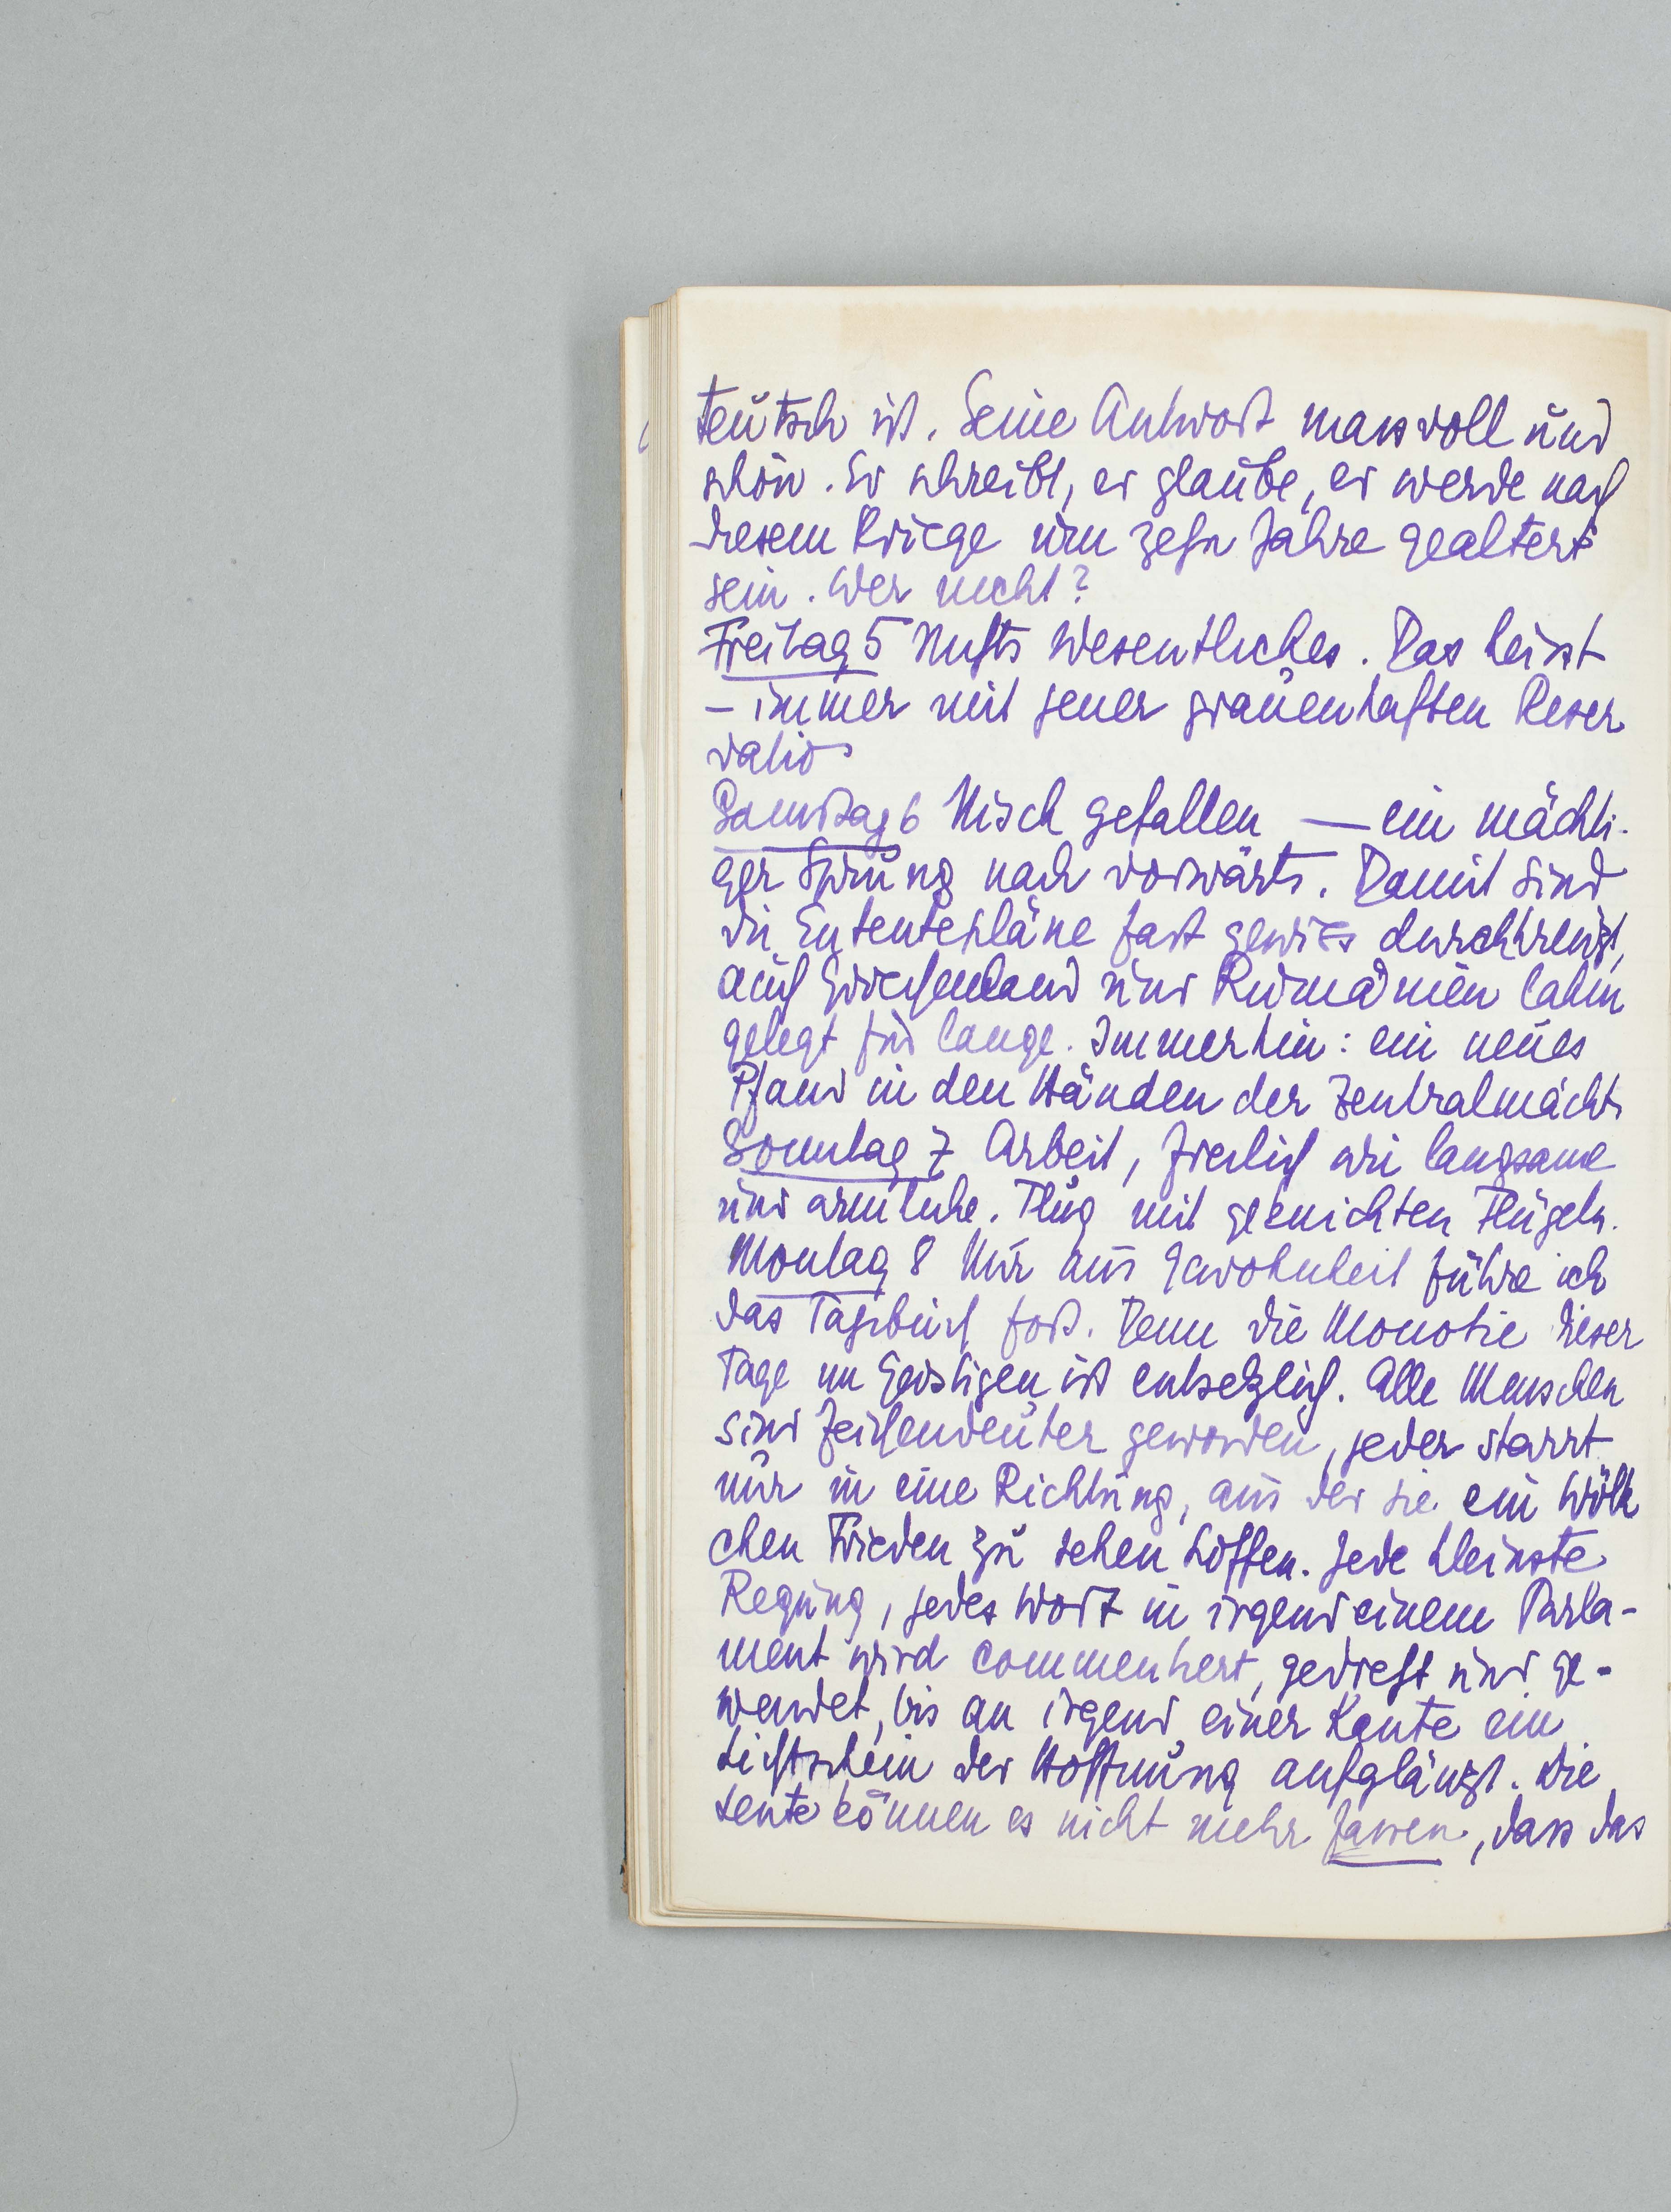 teutsch ist. Seine Antwort massvoll und
schön. Er schreibt, er glaube, er werde nach
diesem Kriege um zehn Jahre gealtert
sein. Wer nicht?
Freitag 5 Nichts Wesentliches. Das heisst
– immer mit jener grauenhaften Reser
vatio
Samstag 6 Nisch gefallen — ein mächti-
ger Sprung nach vorwärts. Damit sind
die Ententepläne fast gewiss durchkreuzt,
auch Griechenland und Rumänien lahm
gelegt für lange. Immerhin: ein neues
Pfand in den Händen der Zentralmächte
Sonntag 7 Arbeit, freilich eine langsame
und armselige. Flug mit geknickten Flügeln.
Montag 8 Nur aus Gewohnheit führe ich
das Tagebuch fort. Denn die Monotie dieser
Tage im Geistigen ist entsetzlich. Alle Menschen
sind Zeichendeuter geworden, jeder starrt
nur in eine Richtung, aus der sie ein Wölk
chen Frieden zu sehen hoffen. Jede kleinste
Regung, jedes Wort in irgend einem Parla-
ment wird commentiert, gedreht und ge-
wendet, bis an irgend einer Kante ein
Lichtschein der Hoffnung aufglänzt. Die
Leute können es nicht mehr fassen, dass das